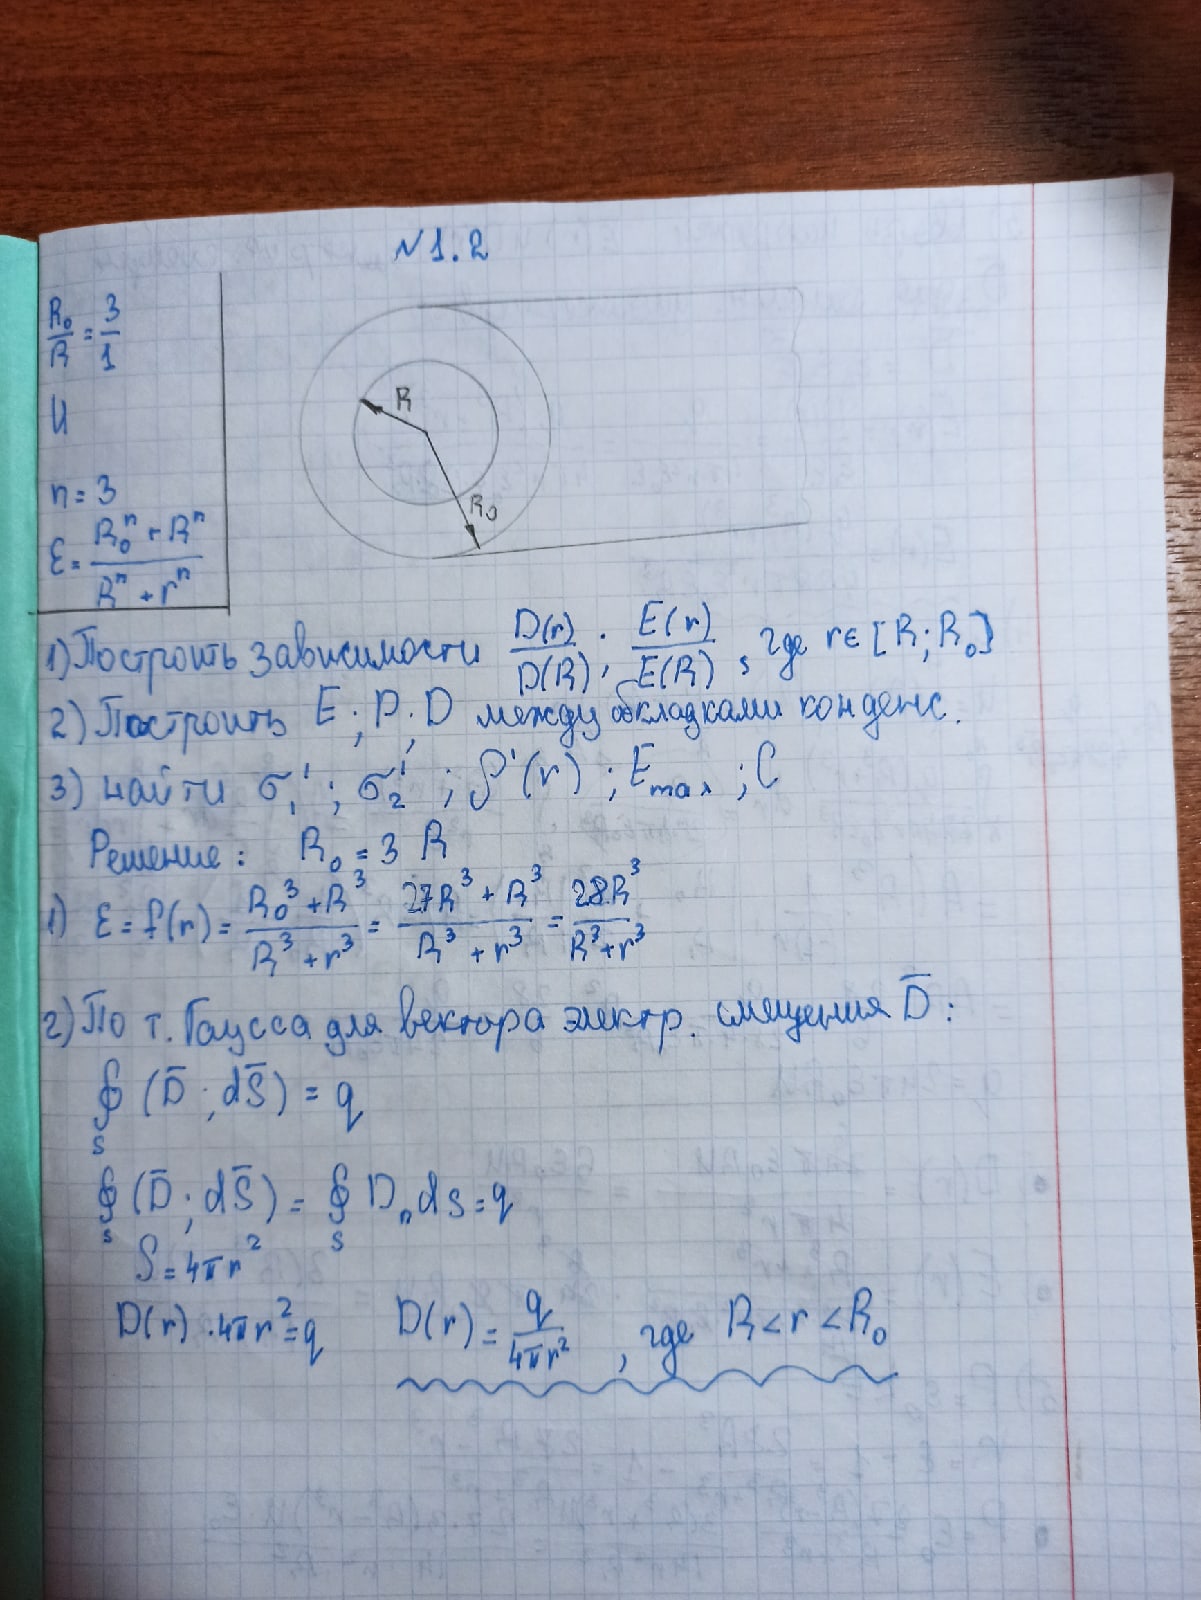 N 1.2
R₀/R = 3/1
U
n = 3
ε = (R₀ⁿ + Rⁿ)/(Rⁿ + rⁿ)
R
R₀
1) Построить зависимости D(r)/D(R); E(r)/E(R), где r∈[R; R₀]
2) Построить E; P; D между обкладками конденс.
3) найти σ₁'; σ₂'; ρ'(r); Eₘₐₓ; C
Решение: R₀ = 3 R
1) ε = f(r) = (R₀³ + R³)/(R³ + r³) = (27R³ + R³)/(R³ + r³) = 28R³/(R³ + r³)
2) По т. Гаусса для вектора электр. смещения D̅:
∮_S (D̅; dS̅) = q
∮_S (D̅; dS̅) = ∮_S Dₙ dS = q
S = 4πr²
D(r) · 4πr² = q D(r) = q/(4πr²), где R < r < R₀